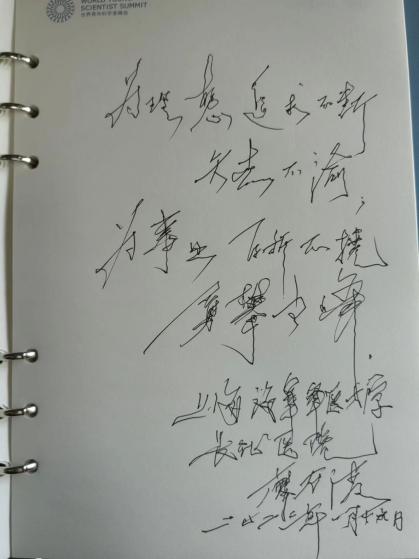 WORLD YOUNG
SCIENTIST SUMMIT
世界青年科学家峰会
为理想追求不断
矢志不渝，
为事业百折不挠
勇攀高峰.
上海海军军医大学
长征医院
二〇二二年一月十六日